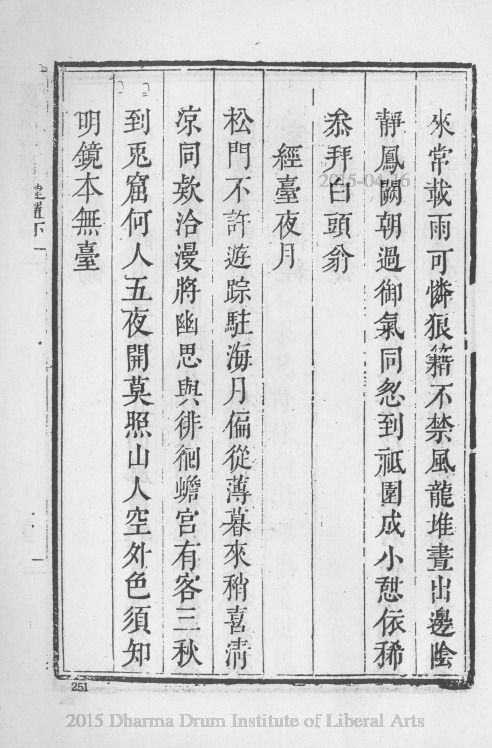 來常載雨可憐狼籍不禁風龍堆晝出邊陰
靜鳳闕朝過御氣同忽到祗園成小憩依稀
叅拜白頭翁
經臺夜月
松門不許遊踪駐海月偏從薄暮來稍喜清
涼同欵洽漫將幽思與徘徊蟾宫有客三秋
到兎窟何人五夜開莫照山人空外色須知
明鏡本無臺
建置下
2015-04-16
251
2015 Dharma Drum Institute of Liberal Arts